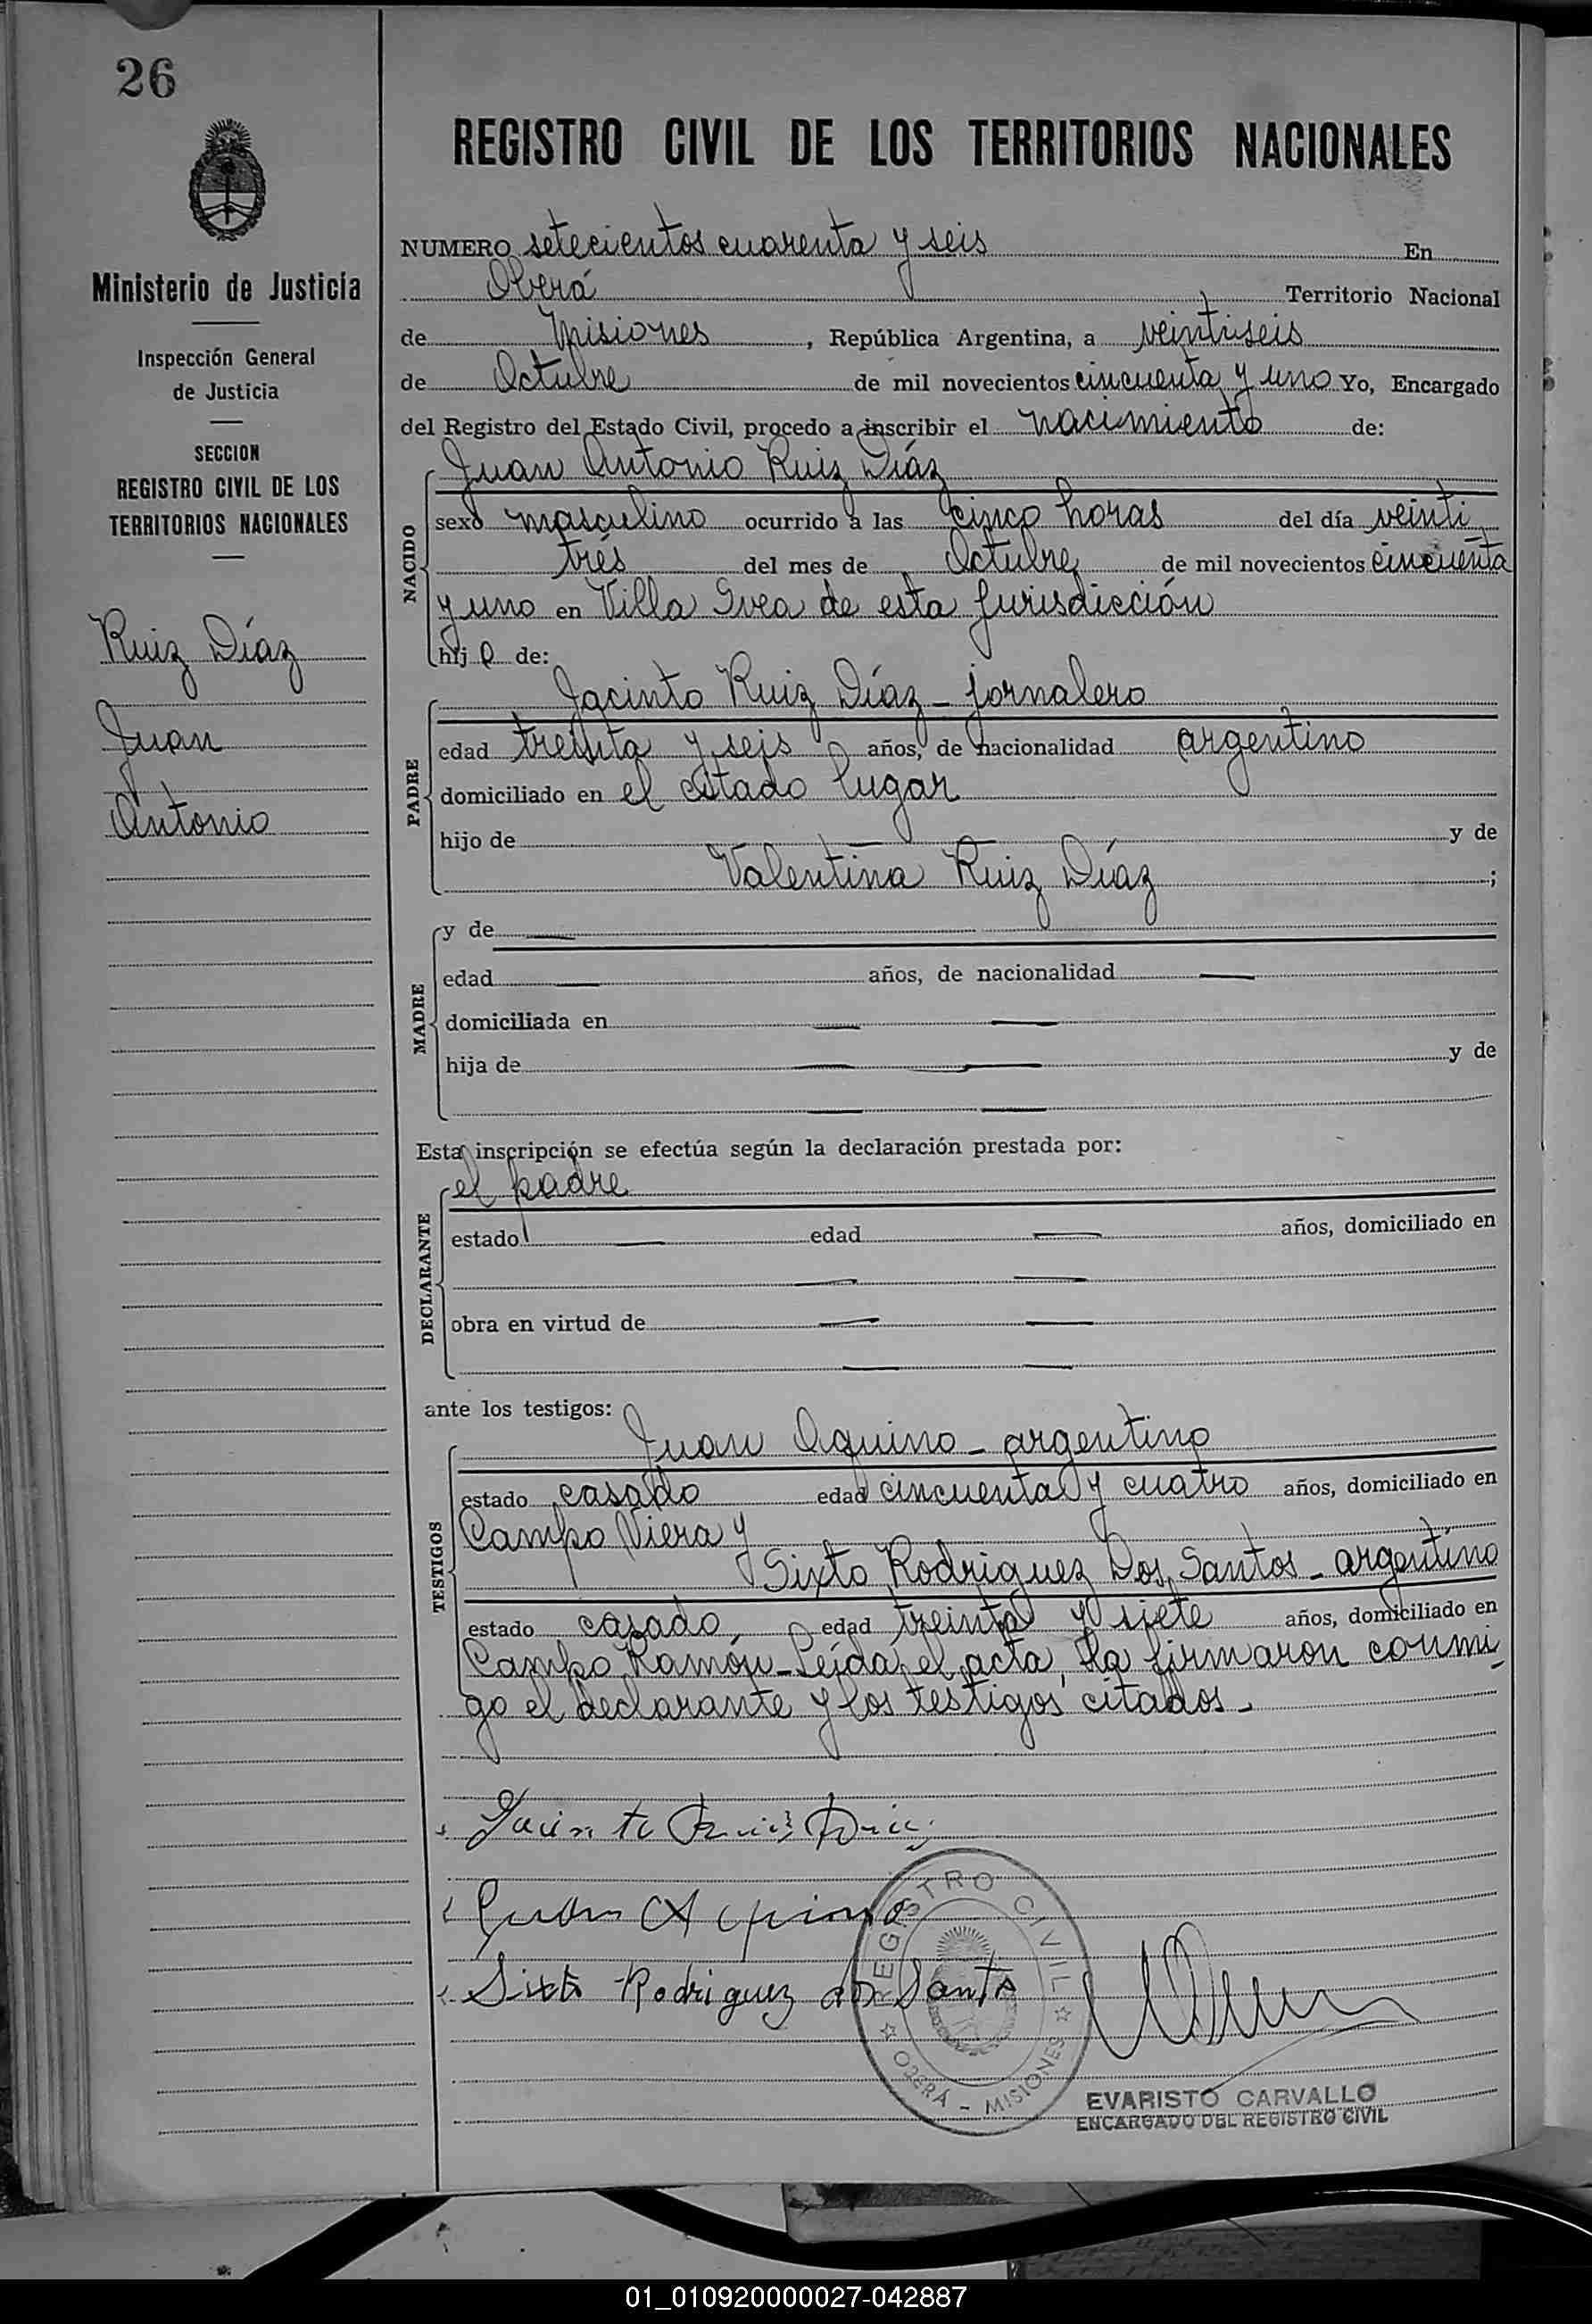 26
Ministerio de Justicia
Inspección General
de Justicia
SECCION
REGISTRO CIVIL DE LOS
TERRITORIOS NACIONALES
Ruiz Díaz
Juan
Antonio
REGISTRO CIVIL DE LOS TERRITORIOS NACIONALES
NUMERO setecientos cuarenta y seis En
Oberá Territorio Nacional
de Misiones, República Argentina, a veintiseis
de Octubre de mil novecientos cincuenta y uno Yo, Encargado
del Registro del Estado Civil, procedo a inscribir el nacimiento de:
Juan Antonio Ruiz Díaz
NACIDO
sexo masculino ocurrido a las cinco horas del día veinti
trés del mes de Octubre de mil novecientos cincuenta
y uno en Villa Svea de esta jurisdicción
hij o de:
Jacinto Ruiz Díaz - jornalero
PADRE
edad treinta y seis años, de nacionalidad argentino
domiciliado en el citado lugar
hijo de — y de
Valentina Ruiz Díaz ;
MADRE
y de —
edad — años, de nacionalidad —
domiciliada en — —
hija de — — y de
— —
Esta inscripción se efectúa según la declaración prestada por:
el padre
DECLARANTE
estado — edad — años, domiciliado en
— —
obra en virtud de — —
— —
ante los testigos:
Juan Aquino - argentino
TESTIGOS
estado casado edad cincuenta y cuatro años, domiciliado en
Campo Viera y
Sixto Rodriguez Dos Santos - argentino
estado casado, edad treinta y siete años, domiciliado en
Campo Ramón - Leída el acta, la firmaron conmi
go el declarante y los testigos citados -
Jacinto Ruiz Diaz
Juan Aquino
Sixto Rodriguez do Santo
REGISTRO CIVIL
OBERÁ - MISIONES
EVARISTO CARVALLO
ENCARGADO DEL REGISTRO CIVIL
01_010920000027-042887